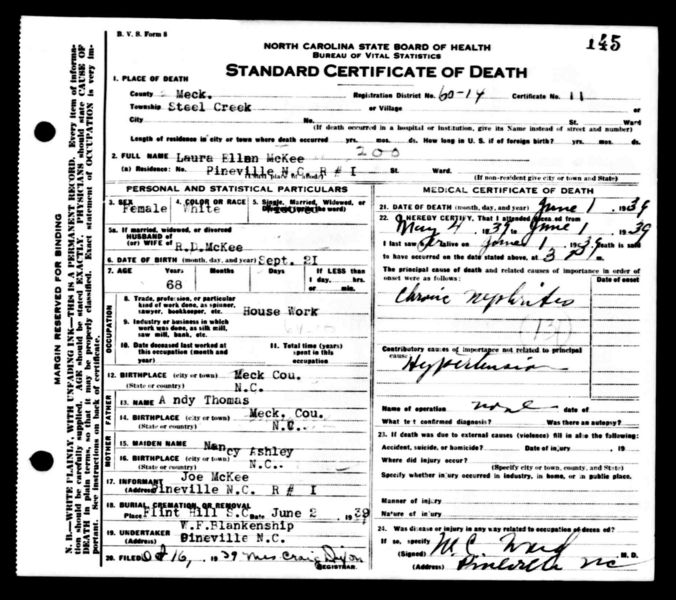 B. V. S. Form 8
145
NORTH CAROLINA STATE BOARD OF HEALTH
BUREAU OF VITAL STATISTICS
STANDARD CERTIFICATE OF DEATH
MARGIN RESERVED FOR BINDING
N. B.—WRITE PLAINLY, WITH UNFADING INK—THIS IS A PERMANENT RECORD. Every item of information should be carefully supplied. AGE should be stated EXACTLY. PHYSICIANS should state CAUSE OF DEATH in plain terms, so that it may be properly classified. Exact statement of OCCUPATION is very important. See instructions on back of certificate.
1. PLACE OF DEATH
County Meck. Registration District No. 60-14 Certificate No. 11
Township Steel Creek or Village
City No. St. Ward
(If death occurred in a hospital or institution, give its Name instead of street and number)
Length of residence in city or town where death occurred yrs. mos. ds. How long in U. S. if of foreign birth? yrs. mos. ds.
200
2. FULL NAME Laura Ellen McKee
(a) Residence: No. Pineville N.C. R # I St. Ward.
(If non-resident give city or town and State)
PERSONAL AND STATISTICAL PARTICULARS
3. SEX Female 4. COLOR OR RACE White 5. Single, Married, Widowed, or
5a. If married, widowed, or divorced
HUSBAND of
(or) WIFE of R.D.McKee
6. DATE OF BIRTH (month, day, and year) Sept. 21
7. AGE Years 68 Months Days If LESS than
1 day, hrs.
or min.
OCCUPATION
8. Trade, profession, or particular
kind of work done, as spinner,
sawyer, bookkeeper, etc. House Work
9. Industry or business in which
work was done, as silk mill,
saw mill, bank, etc.
10. Date deceased last worked at
this occupation (month and
year)
11. Total time (years)
spent in this
occupation
12. BIRTHPLACE (city or town) Meck Cou.
(State or country) N.C.
FATHER
13. NAME Andy Thomas
14. BIRTHPLACE (city or town) Meck. Cou.
(State or country) N.C.
MOTHER
15. MAIDEN NAME Nancy Ashley
16. BIRTHPLACE (city or town)
(State or country) N.C.
17. INFORMANT Joe McKee
(Address) Pineville N.C. R # I
18. BURIAL, CREMATION, OR REMOVAL
Place Flint Hill S.C. Date June 2 1939
19. UNDERTAKER W.F.Blankenship
(Address) Pineville N.C.
20. FILED Oct 16, 1939 Mrs Craig Dixon
REGISTRAR.
MEDICAL CERTIFICATE OF DEATH
21. DATE OF DEATH (month, day, and year) June 1 1939
22. I HEREBY CERTIFY, That I attended deceased from
May 4 1939 to June 1 1939
I last saw alive on June 1 1939 death is said
to have occurred on the date stated above, at 3 P m.
The principal cause of death and related causes of importance in order of
onset were as follows:
Date of onset
Chronic Nephritis
(131)
Contributory causes of importance not related to principal
cause:
Hypertension
Name of operation none date of
What test confirmed diagnosis? Was there an autopsy?
23. If death was due to external causes (violence) fill in also the following:
Accident, suicide, or homicide? Date of injury 19
Where did injury occur?
(Specify city or town, county, and State)
Specify whether injury occurred in industry, in home, or in public place.
Manner of injury
Nature of injury
24. Was disease or injury in any way related to occupation of deceased?
If so, specify
(Signed) M. C. Ward M. D.
(Address) Pineville NC